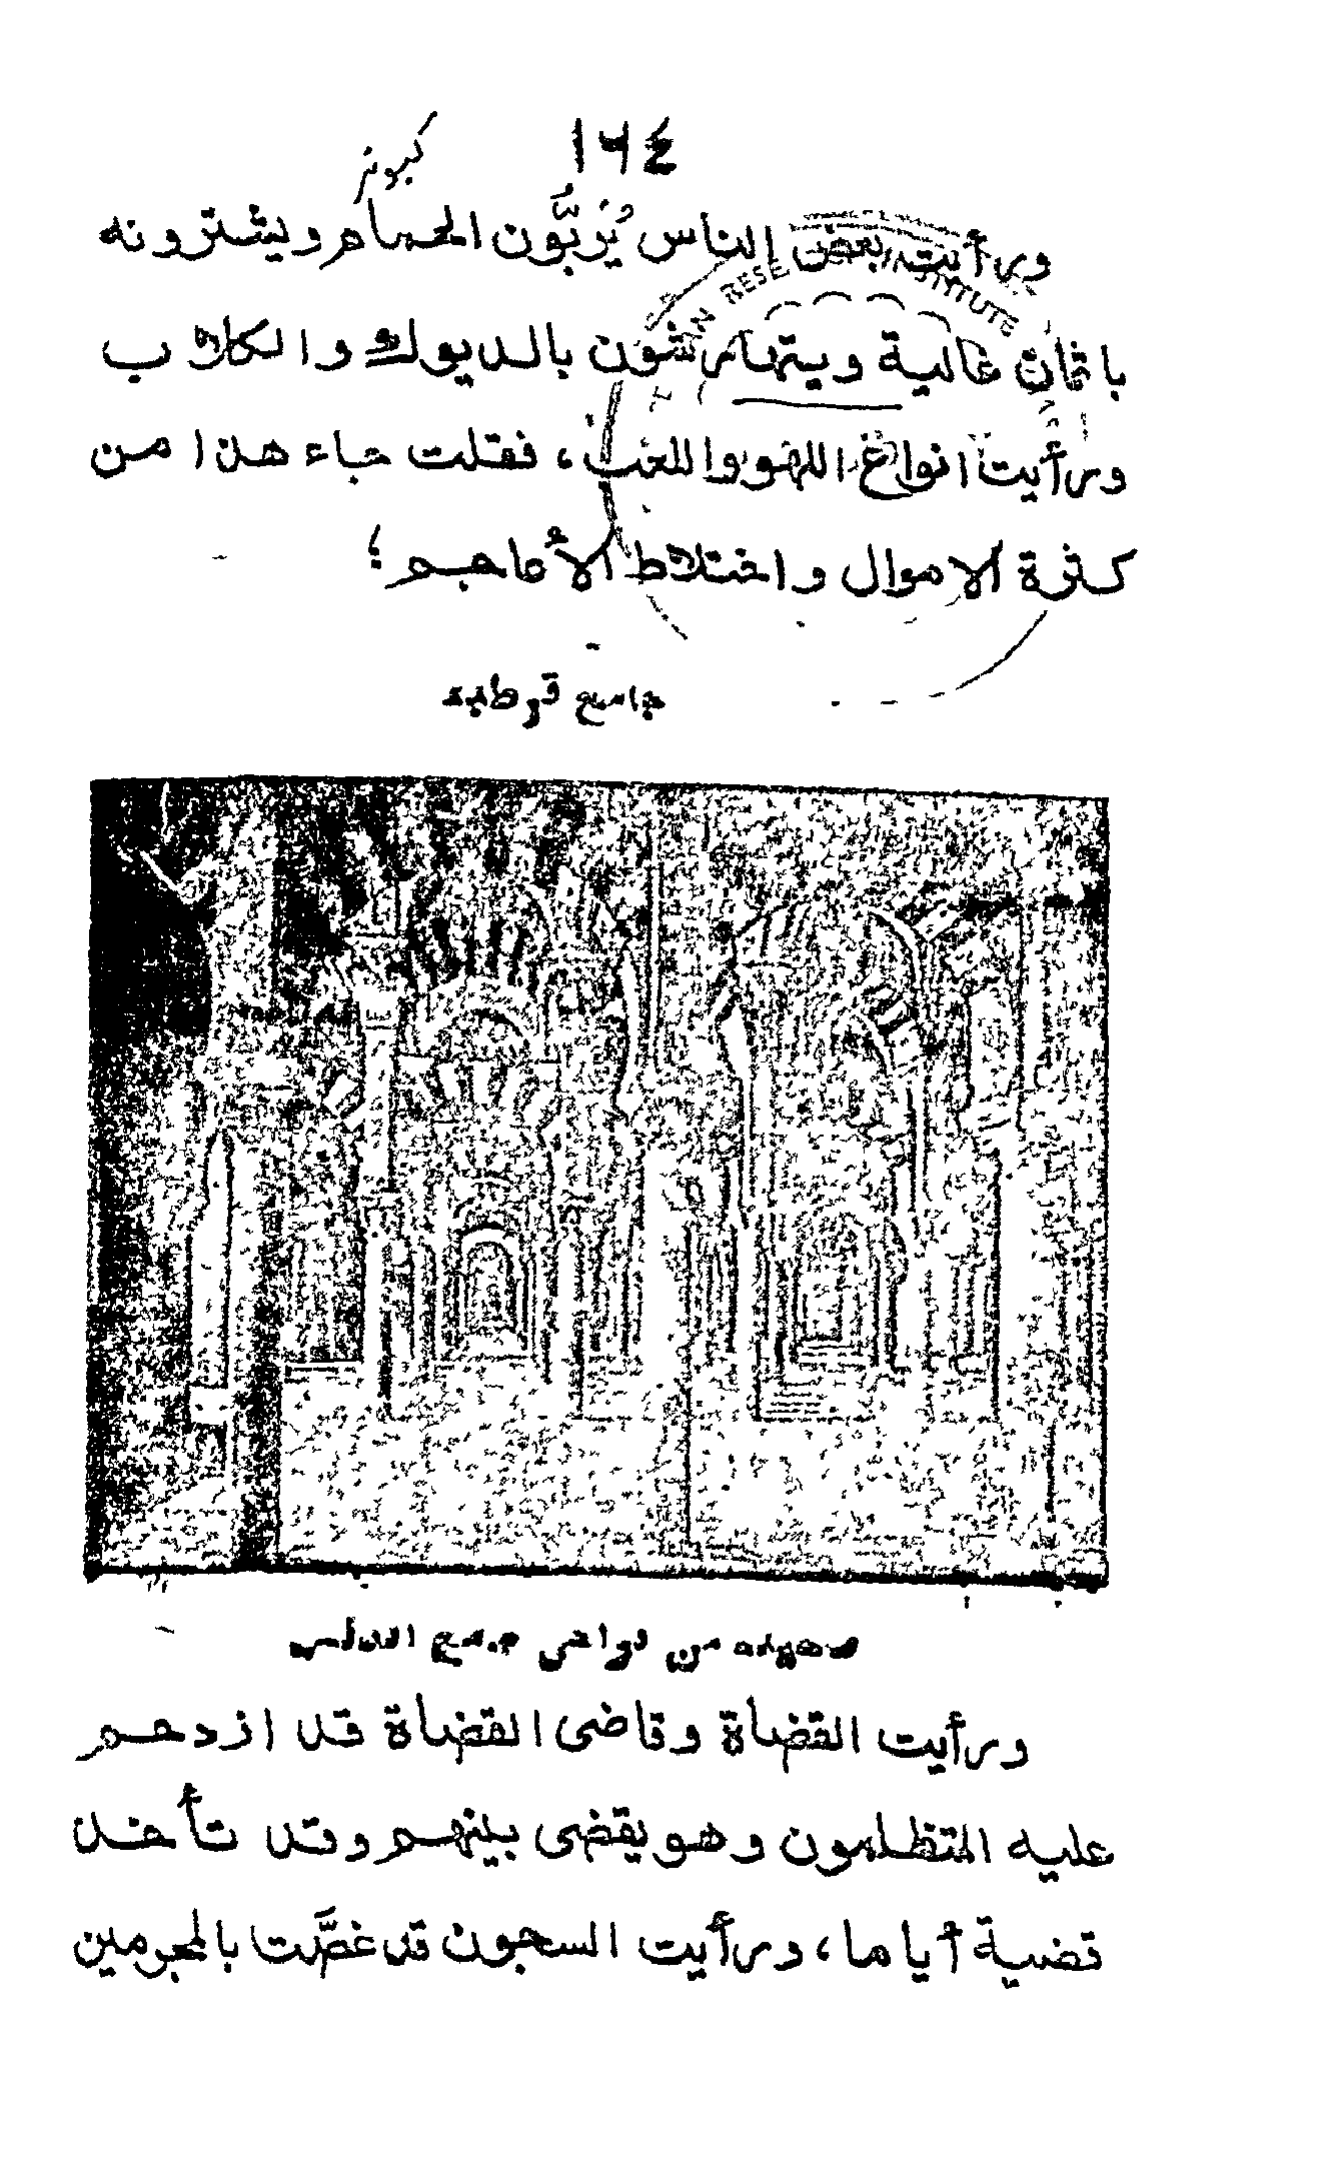 ١٦٤
كبوتر
ورأيت بعض الناس يُربُّون الحمام ويشترونه
باثمان غالية ويتهارشون بالديوك والكلاب
ورأيت انواع اللهو واللعب، فقلت جاء هذا من
كثرة الاموال واختلاط الأعاجم؛
RESE INSTITUTE
جامع قرطبة
من نواحى جامع الاندلس
ورأيت القضاة وقاضى القضاة قد ازدحم
عليه المتظلمون وهو يقضى بينهم وقد تأخذ
قضية أياما، ورأيت السجون قد غصَّت بالمجرمين